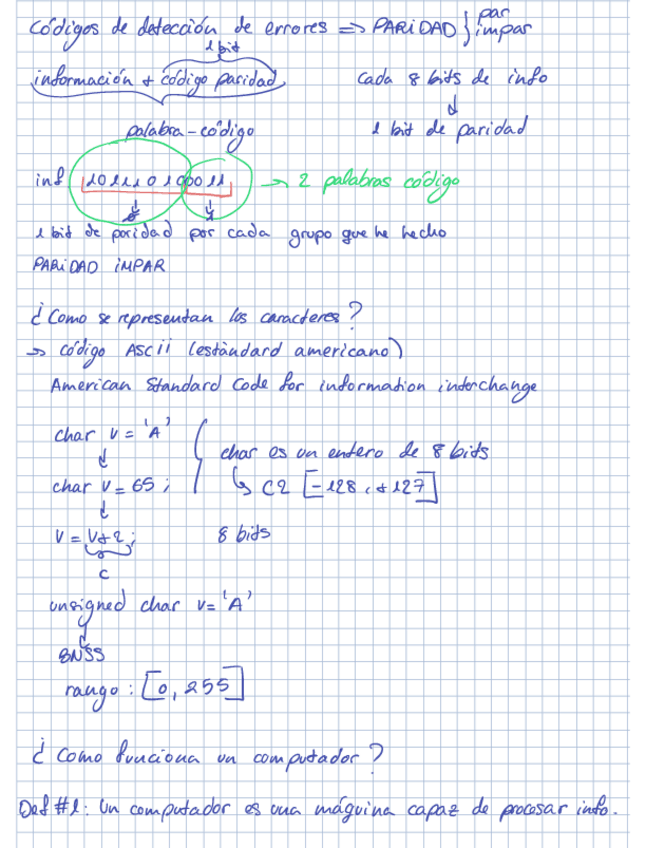 Códigos de detección de errores => PARIDAD } par
impar
1 bit
información + código paridad
cada 8 bits de info
palabra-código
1 bit de paridad
inf 101110 10 0011 → 2 palabras código
8 4
1 bit de paridad por cada grupo que he hecho
PARIDAD IMPAR
¿Como se representan los caracteres?
→ código ASCii (estándard americano)
American Standard Code for information interchange
char v = 'A'
char es un entero de 8 bits
char v = 65;
C2 [-128, +127]
v = v+2;
8 bits
C
unsigned char v= 'A'
BNSS
rango: [0, 255]
¿Como funciona un computador?
Def #1: Un computador es una máquina capaz de procesar info.